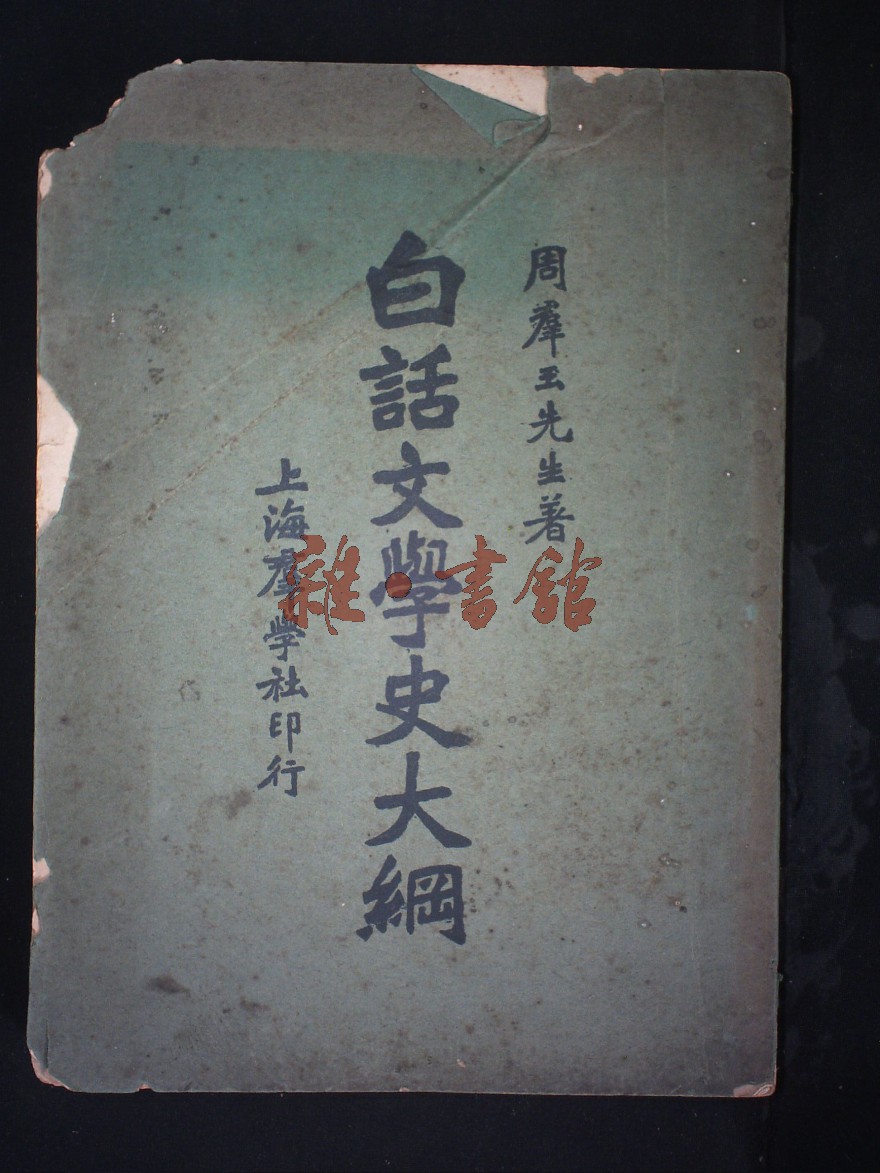 周羣玉先生著
白話文學史大綱
上海羣學社印行
雜·書館